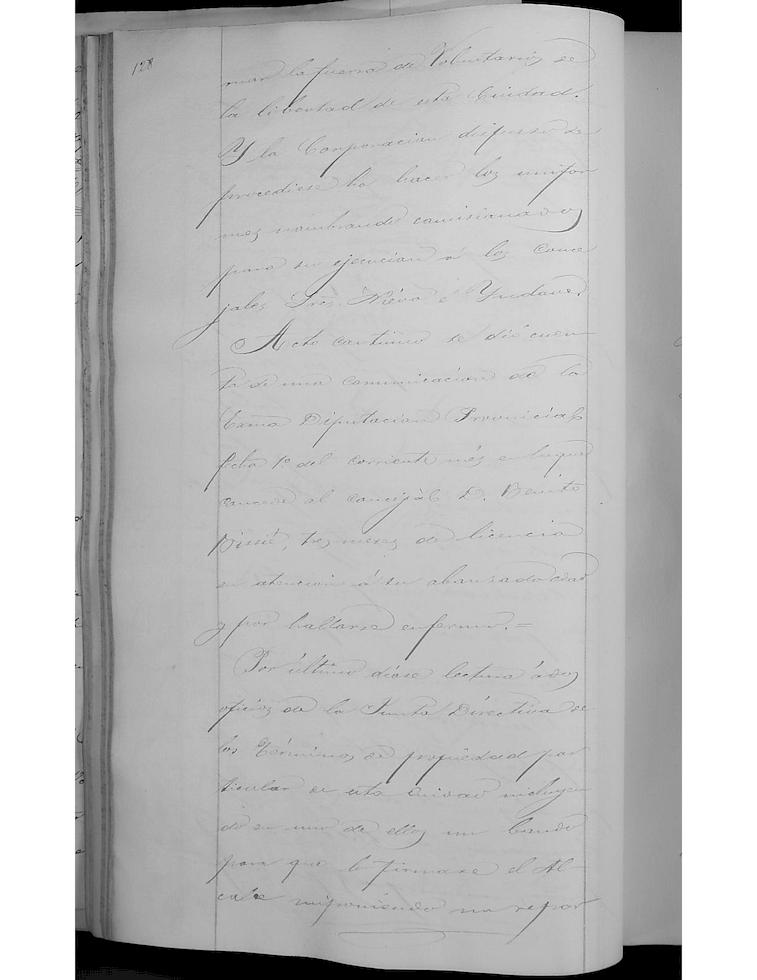 128
mar la fuerza de Voluntarios de
la libertad de esta Ciudad.
Y la Corporacion dispuso se
procediese ha hacer los unifor
mes nombrando comisionados
para su ejecucion á los conce
jales Sres. Niéva é
Acto continuo se dió cuen
ta de una comunicacion de la
Exma Diputacion Provincial
fecha 1º del corriente més en la que
concede al concejal D. Benito
tres meses de licencia
en atencion á su abanzada edad
y por hallarse enfermo.=
Por último dióse lectura á dos
oficios de la Junta Directiva de
los Términos de propiedad par
ticular de esta ciudad incluyen
do en uno de ellos un bando
para que lo firmase el Al-
calde imponiendo un repar